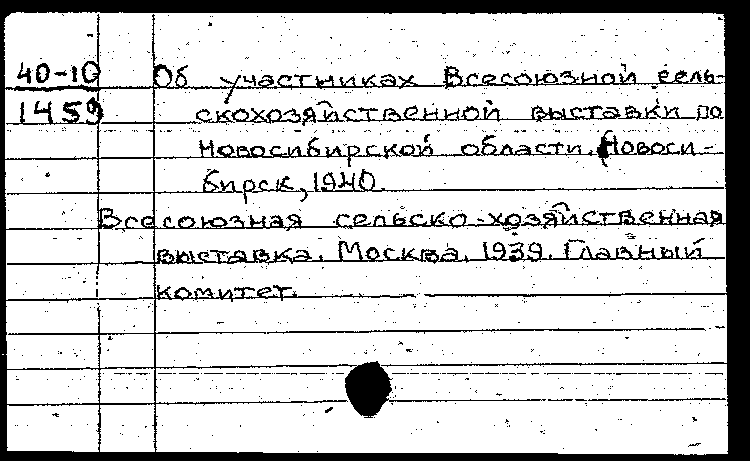 40-10 Об участниках Всесоюзной сель-
1459 скохозяйственной выставки по
Новосибирской области. Новоси-
бирск, 1940.
Всесоюзная сельско-хозяйственная
выставка. Москва. 1939. Главный
комитет.